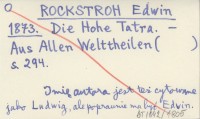 ROCKSTROH Edwin
1873. Die Hohe Tatra. —
Aus Allen Welttheilen ( )
s. 294.
Imię autora jest też cytowane
jako Ludwig, ale poprawnie ma być Edwin.